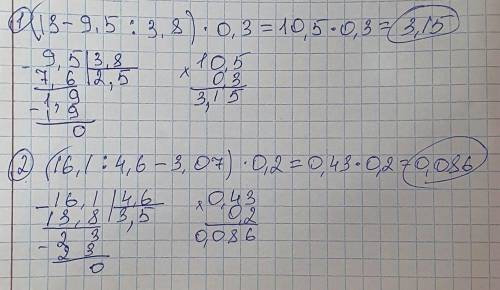 1) (13 - 9,5 : 3,8) · 0,3 = 10,5 · 0,3 = 3,15
- 9,5 | 3,8
7,6 | 2,5
- 1,9
1,9
0
× 10,5
0,3
3,15
2) (16,1 : 4,6 - 3,07) · 0,2 = 0,43 · 0,2 = 0,086
- 16,1 | 4,6
13,8 | 3,5
- 2 3
2 3
0
× 0,43
0,2
0,086